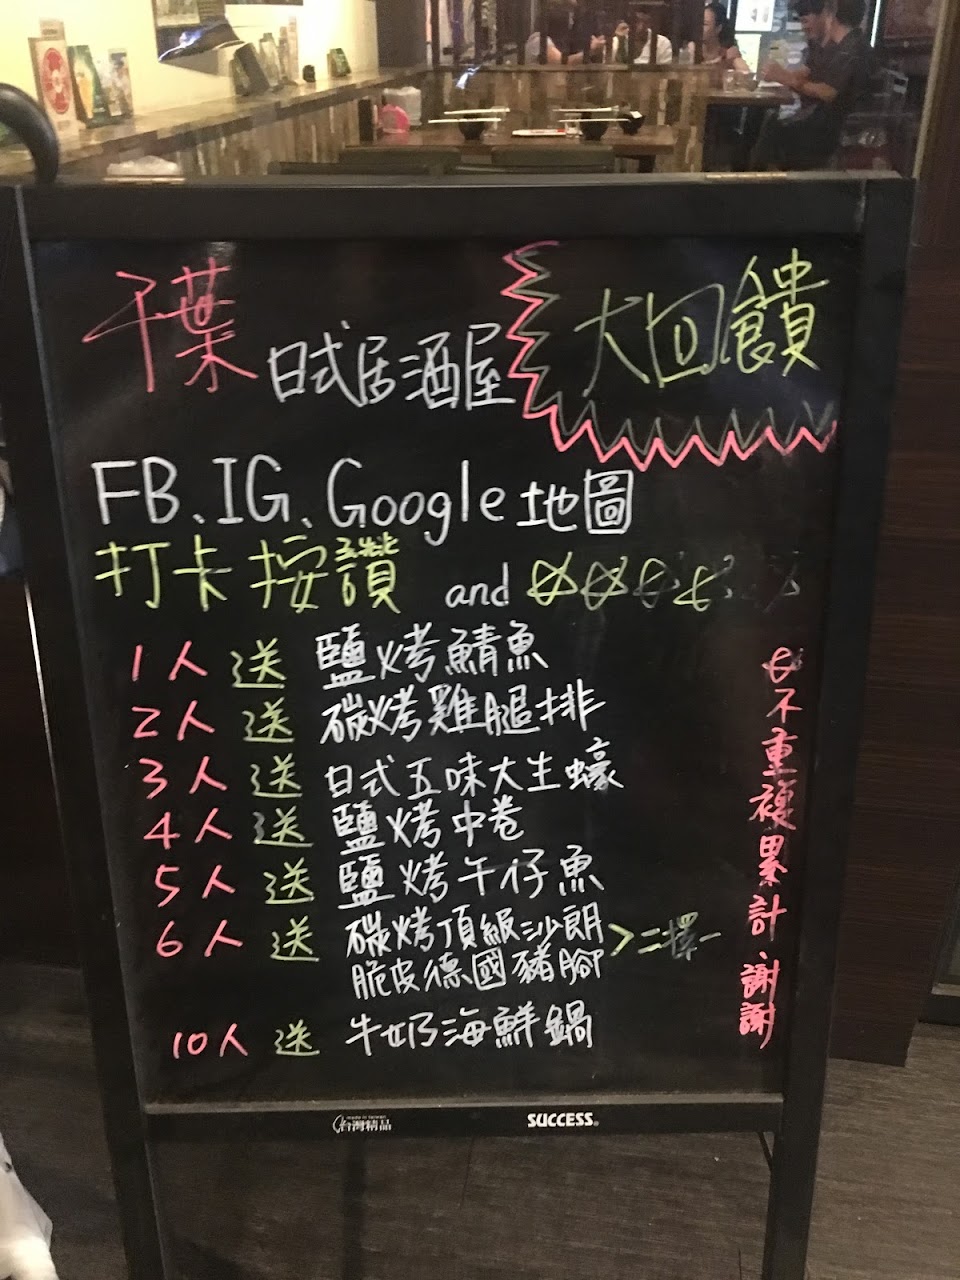 千葉
日式居酒屋
大回饋
FB、IG、Google地圖
打卡按讚 and ☆☆☆☆☆
1人 送 鹽烤鯖魚
2人 送 碳烤雞腿排
3人 送 日式五味大生蠔
4人 送 鹽烤中卷
5人 送 鹽烤午仔魚
6人 送 碳烤頂級沙朗
脆皮德國豬腳
>二擇一
10人 送 牛奶海鮮鍋
☆不重複累計、謝謝
made in taiwan
台灣精品
SUCCESS®